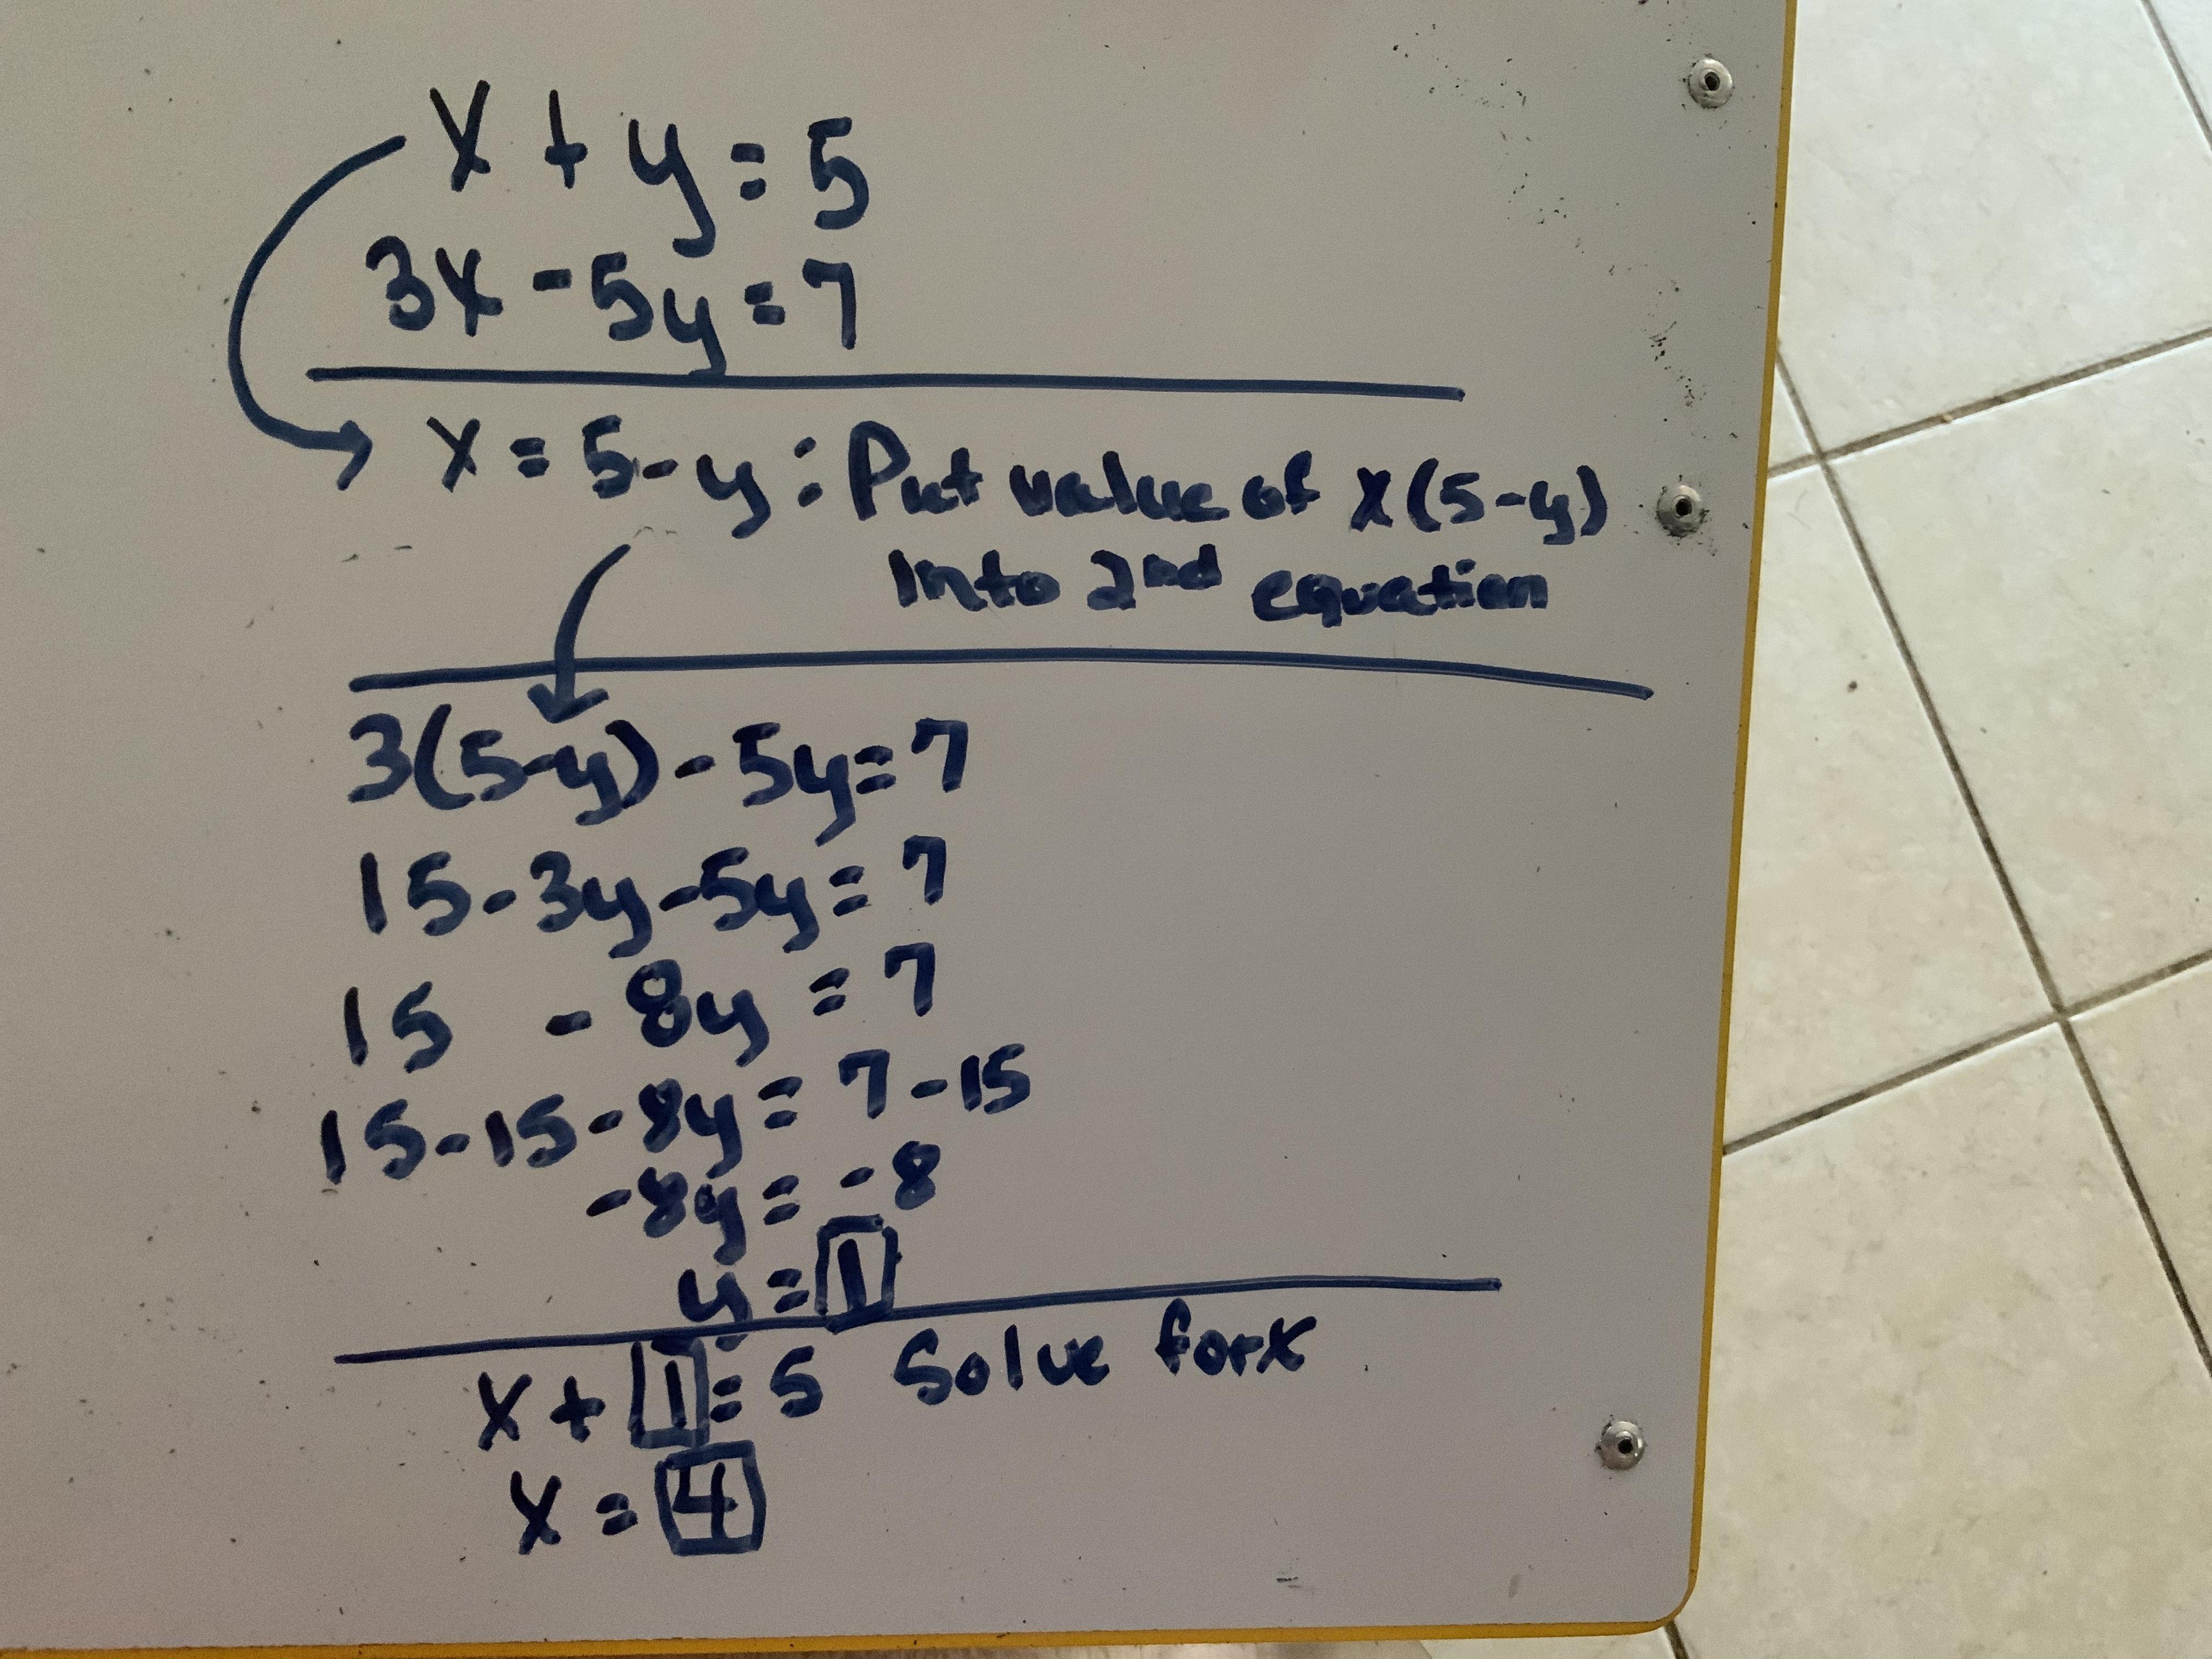 x + y = 5
3x - 5y = 7
x = 5 - y : Put value of x (5 - y)
Into 2nd equation
3(5-y) - 5y = 7
15 - 3y - 5y = 7
15 - 8y = 7
15 - 15 - 8y = 7 - 15
-8y = -8
y = 1
x + 1 = 5 Solve for x
x = 4